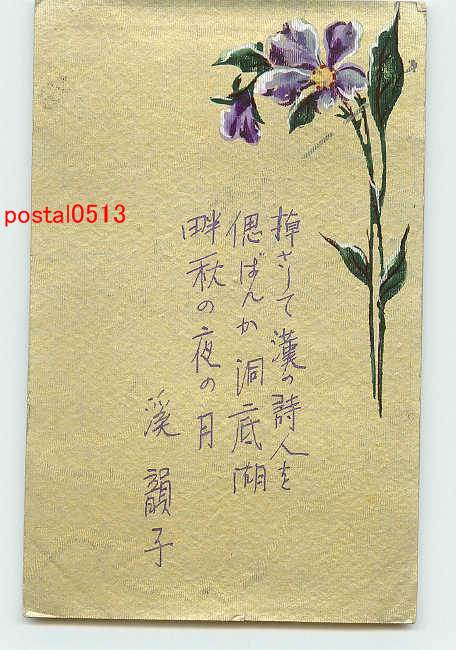 掉さして漢の詩人を
偲ばんか洞底湖
畔秋の夜の月
溪韻子
postal0513